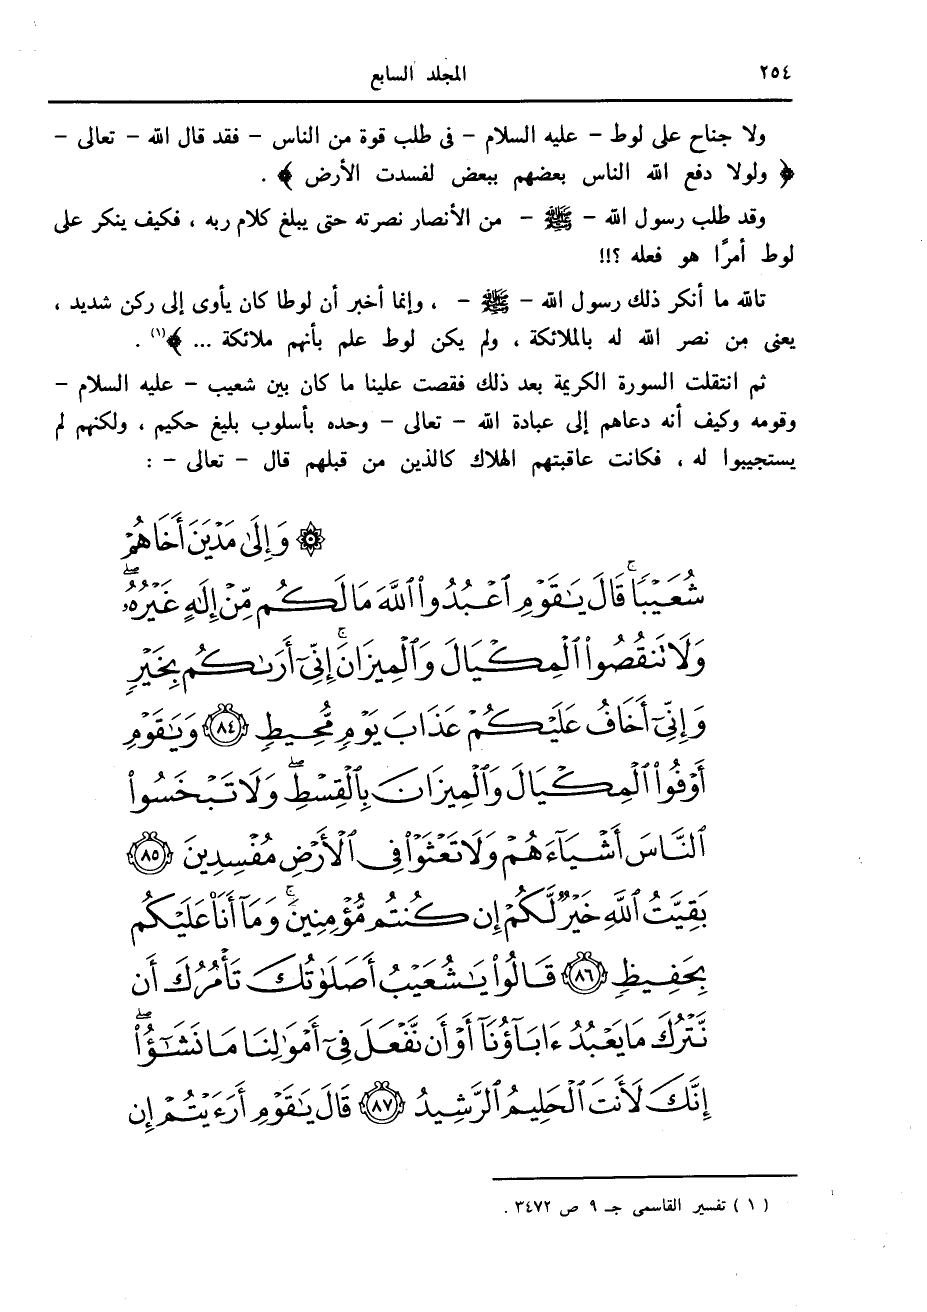 ٢٥٤
المجلد السابع
ولا جناح على لوط – عليه السلام – فى طلب قوة من الناس – فقد قال الله – تعالى –
﴿ ولولا دفع الله الناس بعضهم ببعض لفسدت الأرض ﴾ .
وقد طلب رسول الله – ﷺ – من الأنصار نصرته حتى يبلغ كلام ربه ، فكيف ينكر على
لوط أمرًا هو فعله ؟!!
تالله ما أنكر ذلك رسول الله – ﷺ – ، وإنما أخبر أن لوطا كان يأوى إلى ركن شديد ،
يعنى من نصر الله له بالملائكة ، ولم يكن لوط علم بأنهم ملائكة ... ﴾(١) .
ثم انتقلت السورة الكريمة بعد ذلك فقصت علينا ما كان بين شعيب – عليه السلام –
وقومه وكيف أنه دعاهم إلى عبادة الله – تعالى – وحده بأسلوب بليغ حكيم ، ولكنهم لم
يستجيبوا له ، فكانت عاقبتهم الهلاك كالذين من قبلهم قال – تعالى – :
۞ وَإِلَىٰ مَدْيَنَ أَخَاهُمْ
شُعَيْبًا ۚ قَالَ يَـٰقَوْمِ ٱعْبُدُوا۟ ٱللَّهَ مَا لَكُم مِّنْ إِلَـٰهٍ غَيْرُهُۥ ۖ
وَلَا تَنقُصُوا۟ ٱلْمِكْيَالَ وَٱلْمِيزَانَ ۚ إِنِّىٓ أَرَىٰكُم بِخَيْرٍ
وَإِنِّىٓ أَخَافُ عَلَيْكُمْ عَذَابَ يَوْمٍ مُّحِيطٍ ﴿٨٤﴾ وَيَـٰقَوْمِ
أَوْفُوا۟ ٱلْمِكْيَالَ وَٱلْمِيزَانَ بِٱلْقِسْطِ ۖ وَلَا تَبْخَسُوا۟
ٱلنَّاسَ أَشْيَآءَهُمْ وَلَا تَعْثَوْا۟ فِى ٱلْأَرْضِ مُفْسِدِينَ ﴿٨٥﴾
بَقِيَّتُ ٱللَّهِ خَيْرٌ لَّكُمْ إِن كُنتُم مُّؤْمِنِينَ ۚ وَمَآ أَنَا۠ عَلَيْكُم
بِحَفِيظٍ ﴿٨٦﴾ قَالُوا۟ يَـٰشُعَيْبُ أَصَلَوٰتُكَ تَأْمُرُكَ أَن
نَّتْرُكَ مَا يَعْبُدُ ءَابَآؤُنَآ أَوْ أَن نَّفْعَلَ فِىٓ أَمْوَٰلِنَا مَا نَشَـٰٓؤُا۟ ۖ
إِنَّكَ لَأَنتَ ٱلْحَلِيمُ ٱلرَّشِيدُ ﴿٨٧﴾ قَالَ يَـٰقَوْمِ أَرَءَيْتُمْ إِن
( ١ ) تفسير القاسمى جـ ٩ ص ٣٤٧٢ .